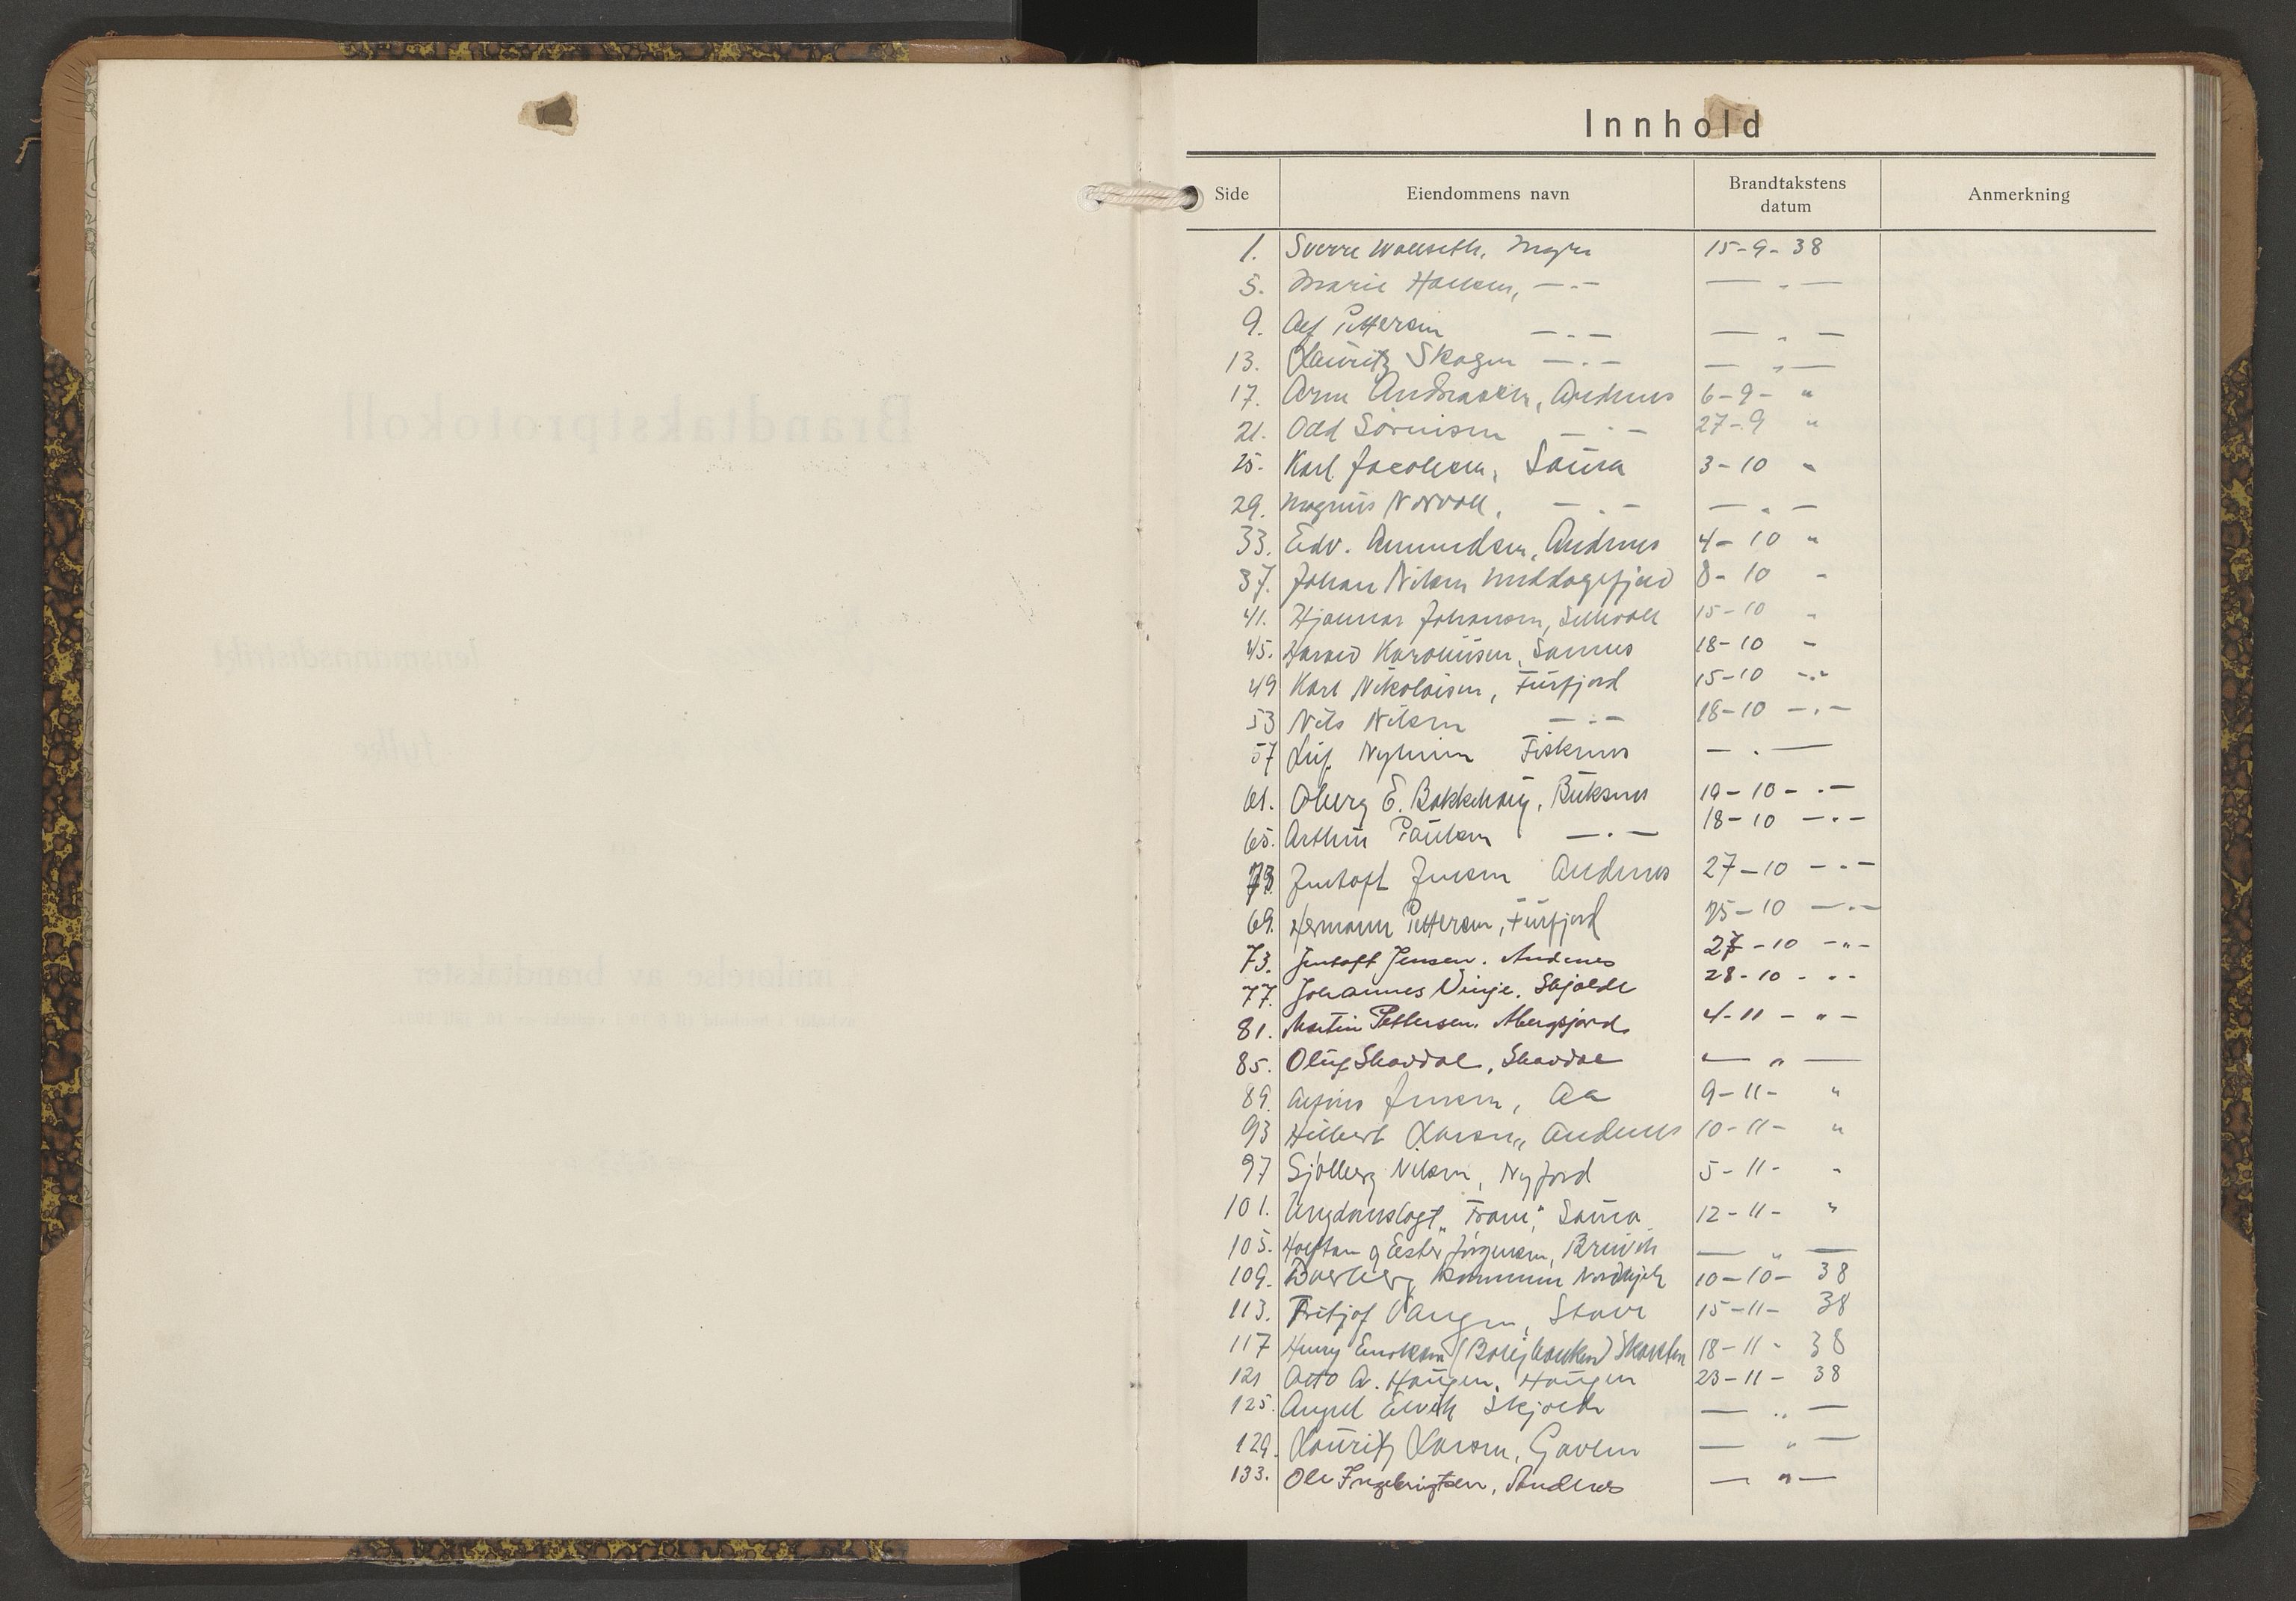 Innhold
Side Eiendommens navn Brandtakstens datum Anmerkning
1. Sverre Wallseth, Myre 15-9-38
5. Marie Hansen, —„— — „ —
9. Alf Pettersen —„— — „ —
13. Lauritz Skogen —„— — „ —
17. Arne Andreasen, Andenes 6-9- "
21. Odd Sörensen —„— 27-9 "
25. Karl Jacobsen, Saura 3-10 "
29. Magnus Norvoll, —„— — „ —
33. Edv. Amundsen, Andenes 4-10 "
37. Johan Nilsen Middagsfjord 8-10 "
41. Hjalmar Johansen, 15-10 "
45. Harald Karoliussen, 18-10 "
49 Karl Nikolaisen, Fürfjord 15-10 -„-
53 Nils Nilsen —„— 18-10 —„—
57 Nyheim Fiskenes — „ —
61. Oberg E. Bakkehaug, Buksnes 19-10-„-
65. Arthur Paulsen —„— 18-10 —„—
73 Jentoft Jensen Andenes 27-10 —„—
69. Hermann Pettersen, Fürfjord 25-10 —„—
73. Jentoft Jensen. Andenes 27-10 -"-
77. Johannes Vinje. Skjolde 28-10 - "-
81. Martin Pettersen. Åbergsjord 4-11 - " -
85. Oluf Skavdal, Skavdal — " —
89. Jensen, Aa 9-11- "
93 Hilbert Larsen, Andenes 10-11- "
97 Sjølberg Nilsen, Nyjord 5-11- "
101. Ungdomslaget „Fram", Saura 12-11- "
105. Halftan og Ester Jörgensen, Breivik — " —
109. Dverberg kommune Nordmjele 10-10- 38
113. Fritjof Vangen, Stave 15-11- 38
117 Henry Enoksen (Bolighuken) Skarsten 18-11- 38
121 Otto A. Haugen, Haugen 23-11- 38
125. August Elvik Skjolde — „ —
129. Lauritz Larsen, Gavlen — " —
133. Ole Ingebrigtsen, Andenes — " —